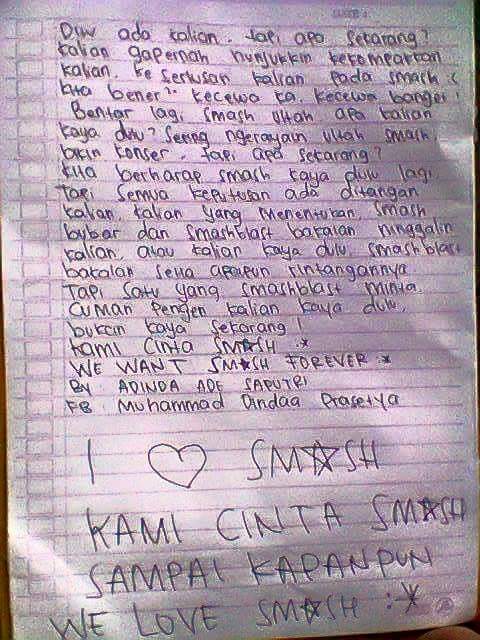 Diw ada kalian. Tapi apa sekarang?
Kalian gapernah nunjukkin kekompakan
kalian. ke seriusan kalian pada smash :(
kita bener². kecewa ka. kecewa banget!
Bentar lagi smash ultah apa kalian
kaya dulu? Sering ngerayain ultah smash
bikin konser. Tapi apa sekarang?
kita berharap smash kaya dulu lagi
Tapi semua keputusan ada ditangan
kalian. kalian yang menentukan. smash
bubar dan smashblast bakalan ninggalin
kalian, atau kalian kaya dulu, smashblast
bakalan setia apapun rintangannya
Tapi satu yang smashblast minta
Cuman pengen kalian kaya dulu,
bukan kaya sekarang!
kami cinta SM☆SH :*
WE WANT SM☆SH FOREVER :*
By ADINDA ADE SAPUTRI
FB : Muhammad Dindaa Prasetya
I ♡ SM☆SH
KAMI CINTA SM☆SH
SAMPAI KAPANPUN
WE LOVE SM☆SH :*